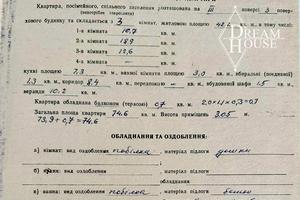 DREAM
HOUSE
Квартира, посімейного, спільного заселення розташована на III поверсі 3 поверхового будинку та складається з 3 кімнат, житловою площею 42,2 кв. м, в тому числі:
1-а кімната 10,7 кв. м.
2-а кімната 18,9 кв. м.
3-а кімната 12,6 кв. м.
кв. м.
кухні площею 7,3 кв. м, ванної кімнати площею 3,0 кв. м, вбиральні (поєднаної)
1,3 кв. м, коридор 8,4 кв. м, передпокою — кв. м, вбудованої шафи 1,5 кв. м,
веранди 10,2 кв. м.
Квартира обладнана балконом (терасою) 0,7 кв. м. 2,0×1,1×0,3=0,7
Загальна площа квартири 74,6 кв. м. Висота приміщень 3,05 м.
73,9+0,7=74,6
ОБЛАДНАННЯ ТА ОЗДОБЛЕННЯ:
а) кімнат: вид оздоблення побілка, матеріал підлоги дошки
б) кухня: вид оздоблення, матеріал підлоги
в) ванна: вид оздоблення побілка, матеріал підлоги